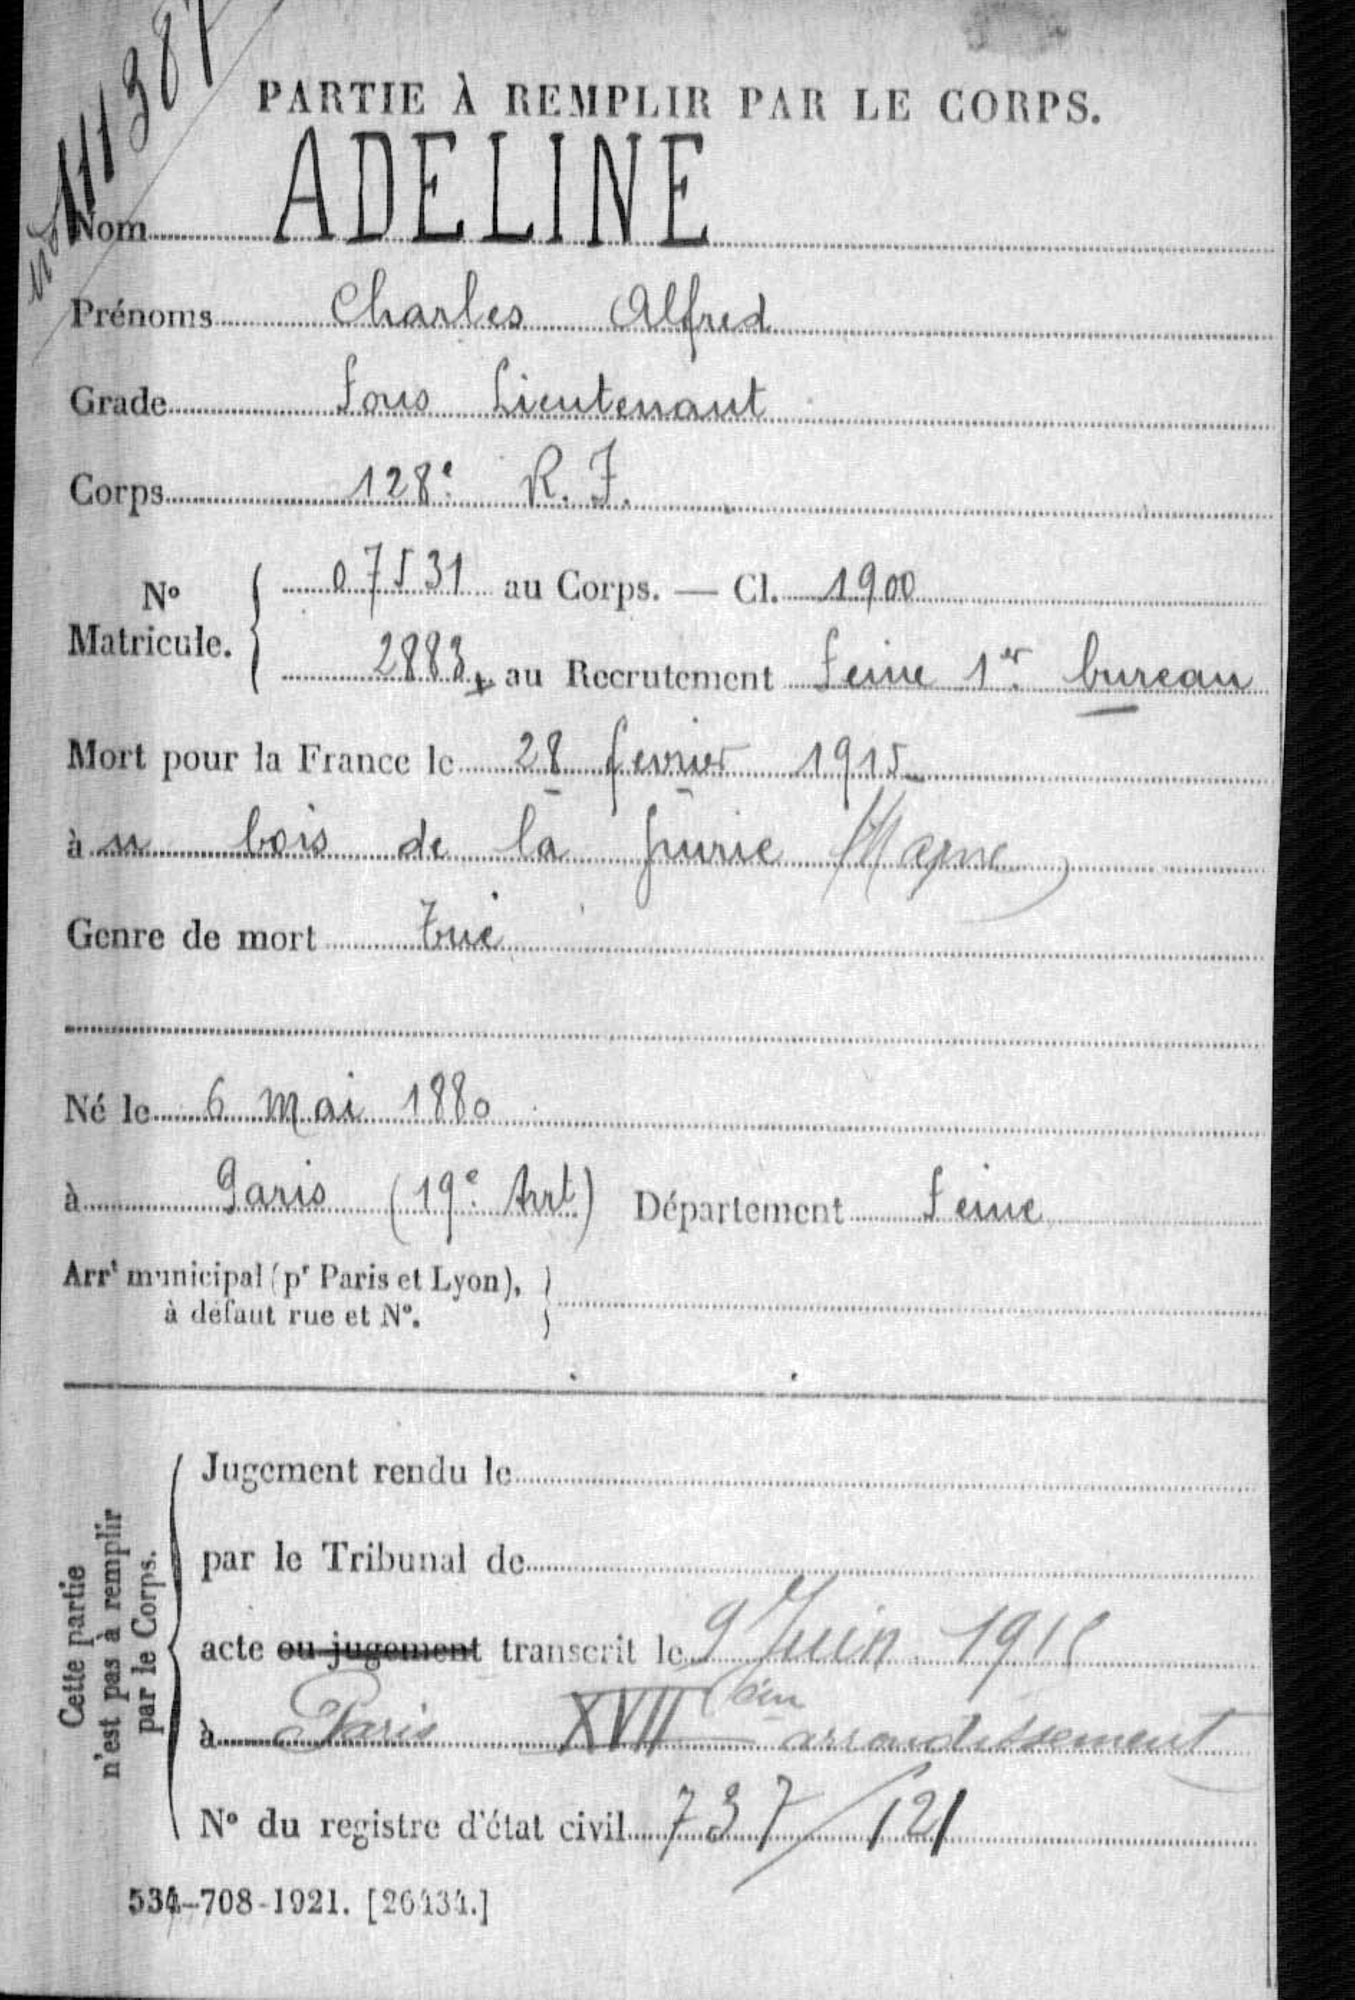 nº 111387
PARTIE À REMPLIR PAR LE CORPS.
Nom ADELINE
Prénoms Charles Alfred
Grade Sous Lieutenant
Corps 128e R.I.
Nº Matricule. { 07531 au Corps. — Cl. 1900
2883 au Recrutement Seine 1er bureau
Mort pour la France le 28 fevrier 1915
à bois de la Grurie Marne
Genre de mort Tué
Né le 6 mai 1880
à Paris (19e Arrt) Département Seine
Arrt municipal (pr Paris et Lyon),
à défaut rue et Nº.
Cette partie
n'est pas à remplir
par le Corps.
Jugement rendu le
par le Tribunal de
acte ou jugement transcrit le 9 Juin 1915
à Paris XVII ème arrondissement
Nº du registre d'état civil 737/121
534-708-1921. [26434.]